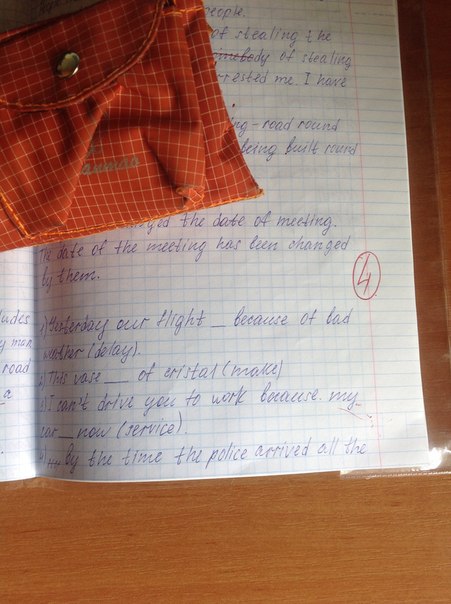 people.
of stealing the
somebody of stealing
arrested me. I have
ing-road round
being built round
the date of meeting.
The date of the meeting has been changed
by them.
4
1) Yesterday our flight _ because of bad
weather (delay).
2) This vase ___ of cristal (make)
3) I can't drive you to work because my
car __ now (service).
4) by the time the police arrived all the
road
a